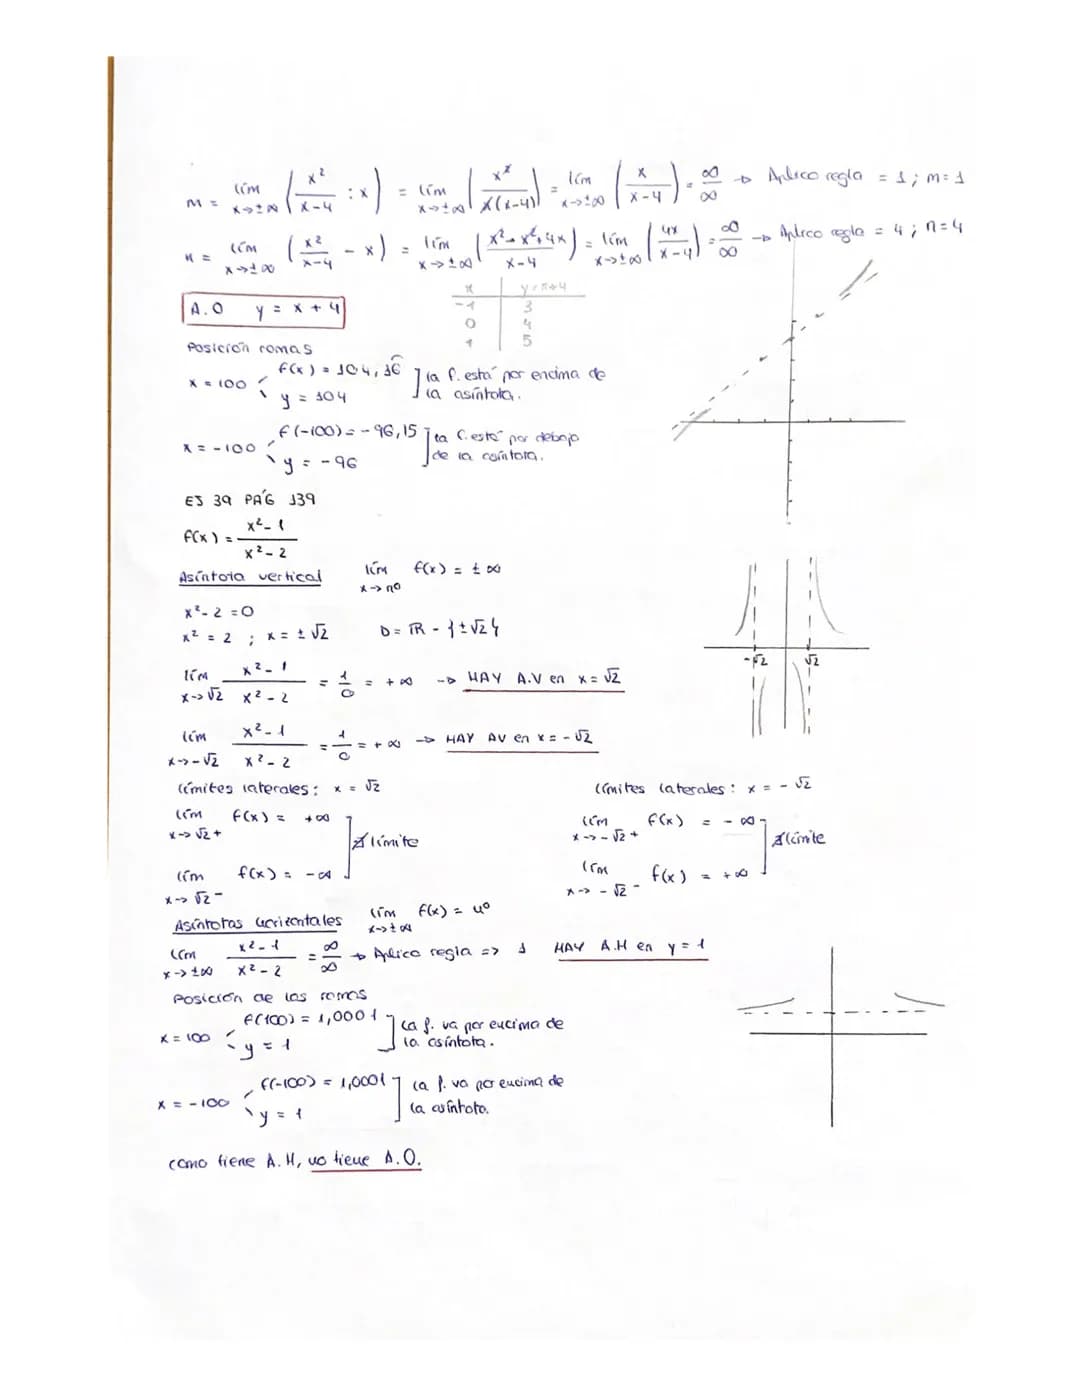 m = lím x→±∞ (x²/(x-4) : x) = lím x→±∞ (x²/(x(x-4))) = lím x→±∞ (x/(x-4)) = ∞/∞ → Aplico regla = 1 ; m = 1
n = lím x→±∞ (x²/(x-4) - x) = lím x→±∞ ((x² - x² + 4x)/(x-4)) = lím x→±∞ (4x/(x-4)) = ∞/∞ → Aplico regla = 4 ; n = 4
A.O y = x + 4
x | y = x+4
-1 | 3
0 | 4
1 | 5
Posición ramas
x = 100 f(x) = 104,16 y = 104 ] la f. está por encima de la asíntota.
x = -100 f(-100) = -96,15 y = -96 ] la f. está por debajo de la asíntota.
EJ 39 PÁG 139
f(x) = (x² - 1)/(x² - 2)
Asíntota vertical lím x→nº f(x) = ± ∞
x² - 2 = 0
x² = 2 ; x = ± √2 D = ℝ - {±√2}
-√2 √2
lím x→√2 (x² - 1)/(x² - 2) = 1/0 = + ∞ → HAY A.V en x = √2
lím x→-√2 (x² - 1)/(x² - 2) = 1/0 = + ∞ → HAY AV en x = - √2
límites laterales : x = √2
lím x→√2+ f(x) = +∞
lím x→√2- f(x) = -∞ ] ∄ límite
límites laterales : x = - √2
lím x→-√2+ f(x) = - ∞
lím x→-√2- f(x) = +∞ ] ∄ límite
Asíntotas horizontales lím x→±∞ f(x) = nº
lím x→±∞ (x² - 1)/(x² - 2) = ∞/∞ → Aplico regla => 1 HAY A.H en y = 1
Posición de las ramas
x = 100 f(100) = 1,0001 y = 1 ] la f. va por encima de la asíntota.
x = -100 f(-100) = 1,0001 y = 1 ] la f. va por encima de la asíntota.
como tiene A.H, no tiene A.O.